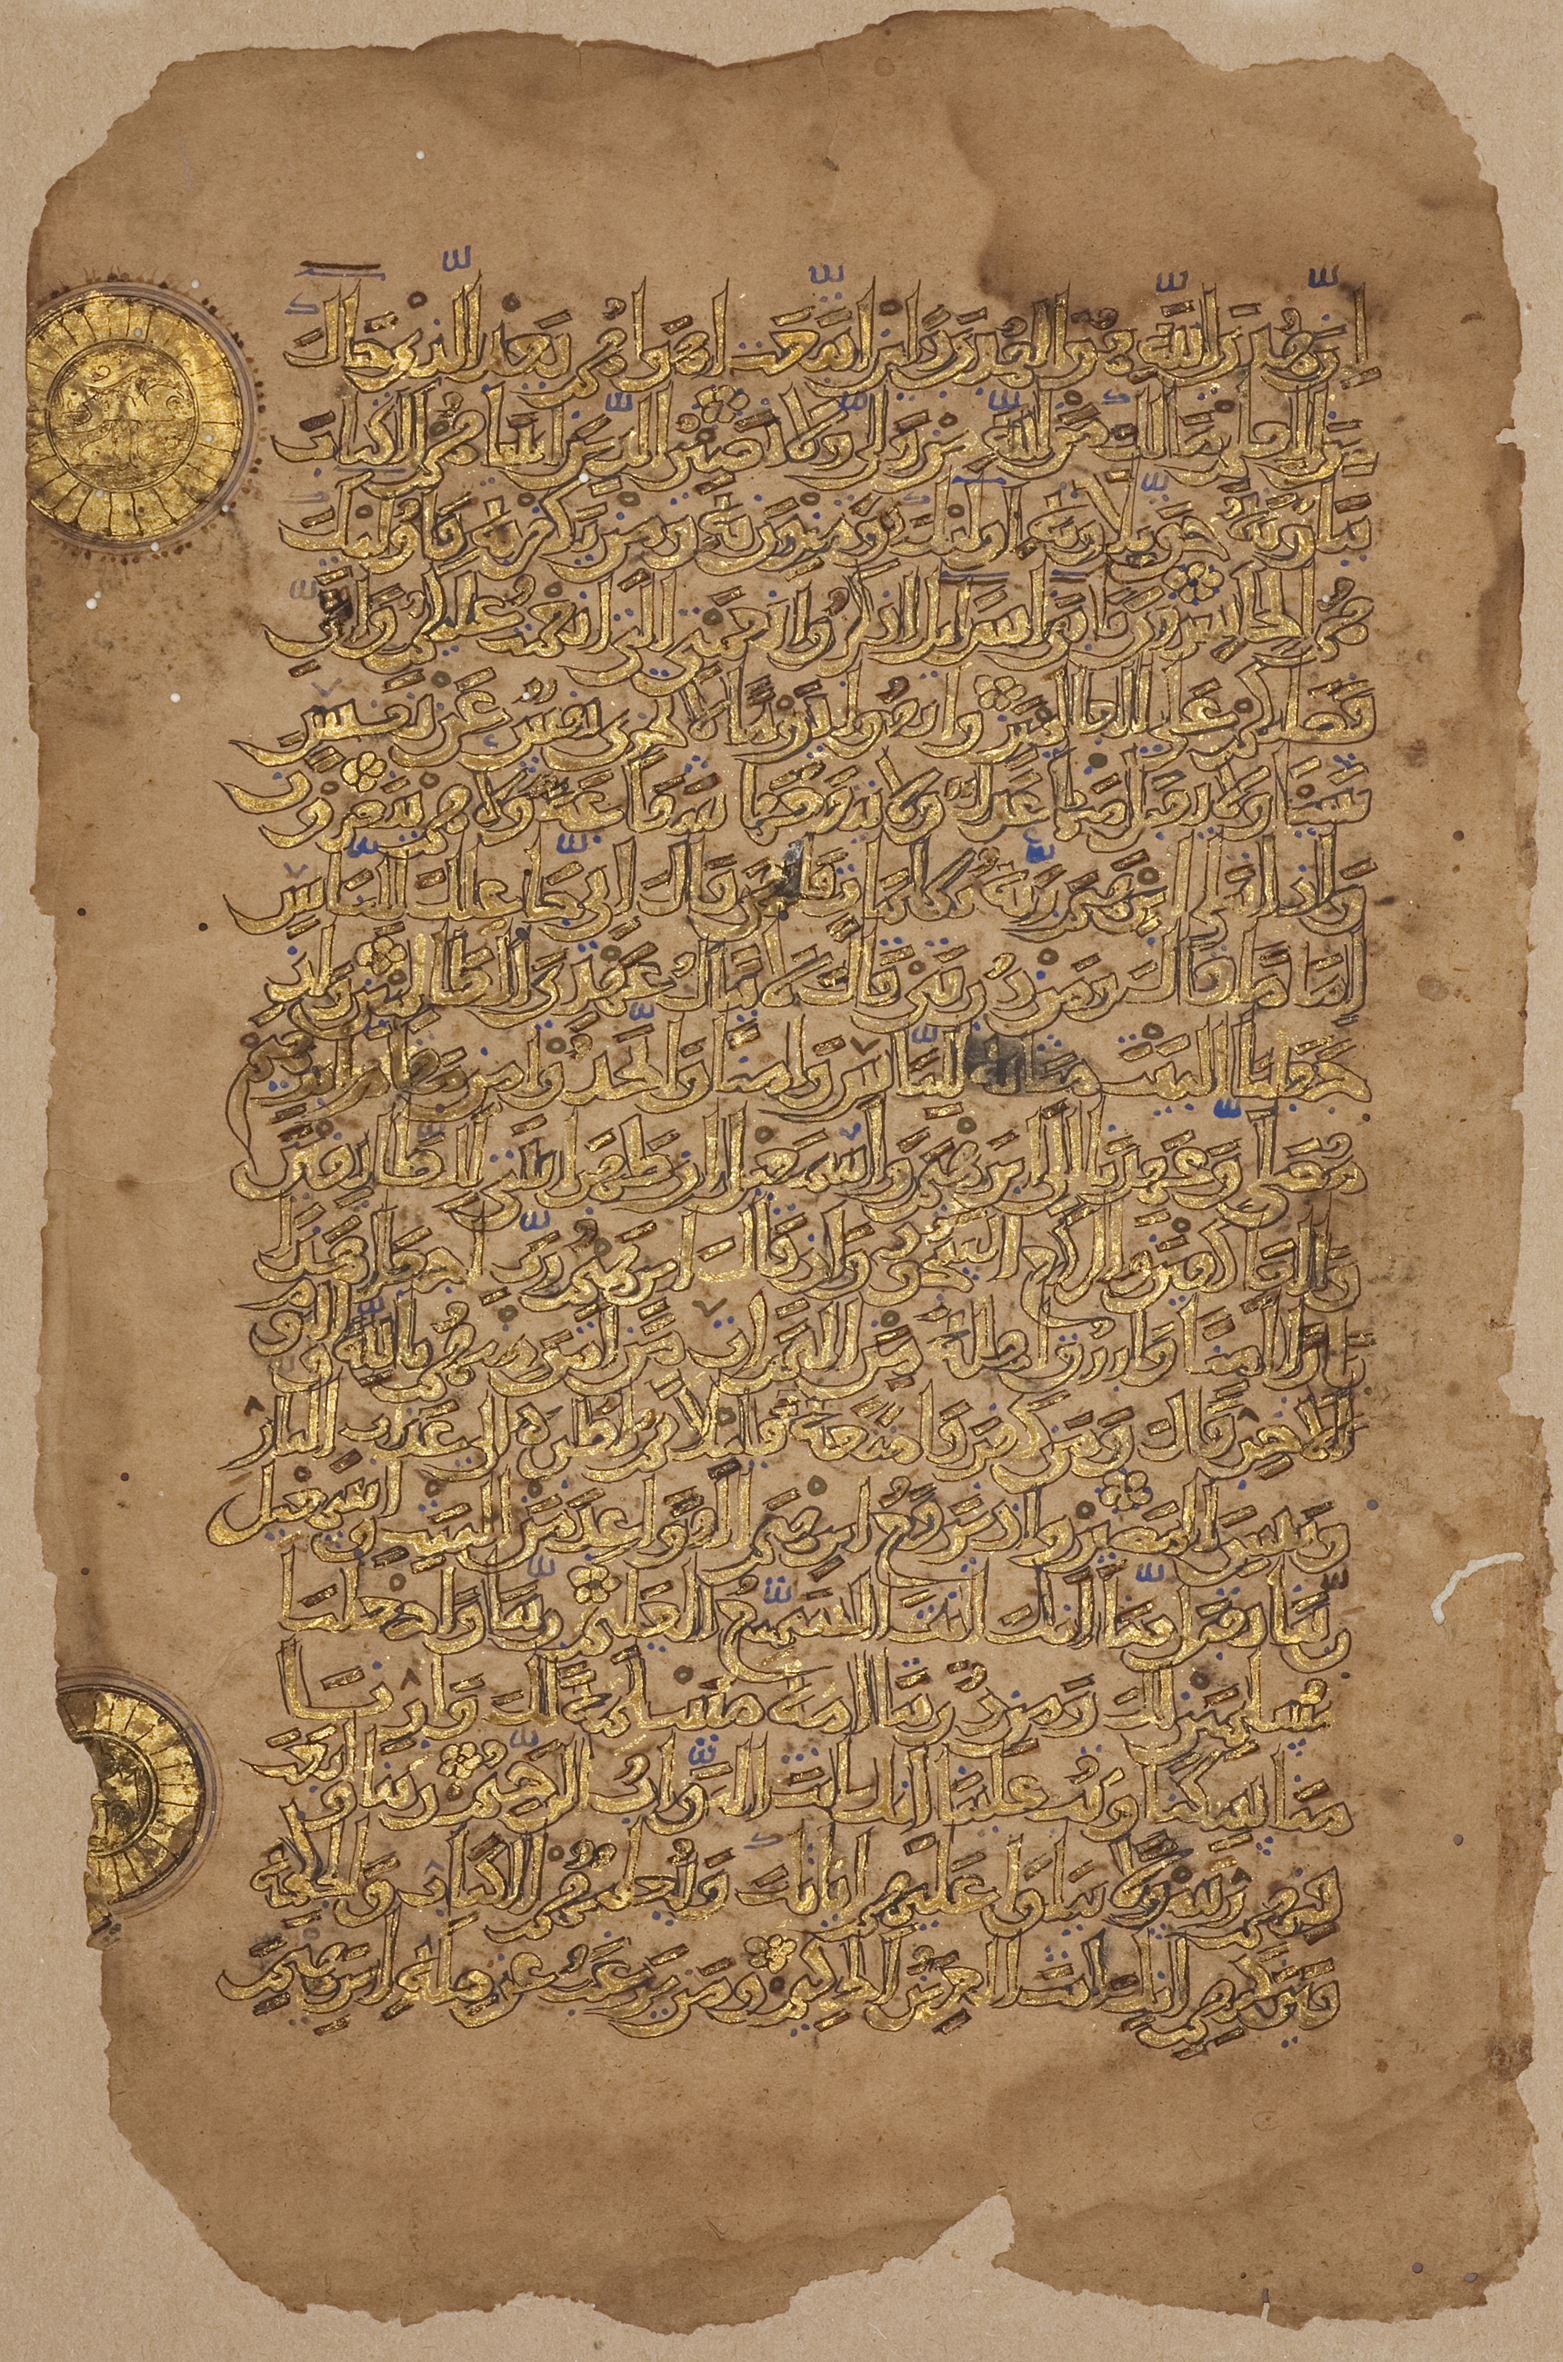 إن هدى الله هو الهدى ولئن اتبعت أهواءهم بعد الذي جاءك
من العلم ما لك من الله من ولي ولا نصير الذين آتيناهم الكتاب
يتلونه حق تلاوته أولئك يؤمنون به ومن يكفر به فأولئك
هم الخاسرون يا بني إسرائيل اذكروا نعمتي التي أنعمت عليكم وأني
فضلتكم على العالمين واتقوا يوما لا تجزي نفس عن نفس
شيئا ولا يقبل منها عدل ولا تنفعها شفاعة ولا هم ينصرون
وإذ ابتلى إبرهيم ربه بكلمات فأتمهن قال إني جاعلك للناس
إماما قال ومن ذريتي قال لا ينال عهدي الظالمين وإذ
جعلنا البيت مثابة للناس وأمنا واتخذوا من مقام إبرهيم
مصلى وعهدنا إلى إبرهيم وإسمعيل أن طهرا بيتي للطائفين
والعاكفين والركع السجود وإذ قال إبرهيم رب اجعل هذا
بلدا آمنا وارزق أهله من الثمرات من آمن منهم بالله واليوم
الآخر قال ومن كفر فأمتعه قليلا ثم أضطره إلى عذاب النار
وبئس المصير وإذ يرفع إبرهيم القواعد من البيت وإسمعيل
ربنا تقبل منا إنك أنت السميع العليم ربنا واجعلنا
مسلمين لك ومن ذريتنا أمة مسلمة لك وأرنا
مناسكنا وتب علينا إنك أنت التواب الرحيم ربنا وابعث
فيهم رسولا يتلوا عليهم آياتك ويعلمهم الكتاب والحكمة
ويزكيهم إنك أنت العزيز الحكيم ومن يرغب عن ملة إبرهيم